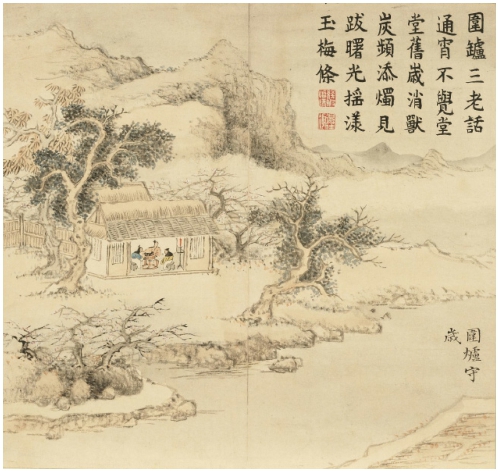 圍鑪三老話
通宵不覺堂
堂舊嵗消獸
炭頻添燭見
跋曙光搖漾
玉梅條
圍爐守
歲